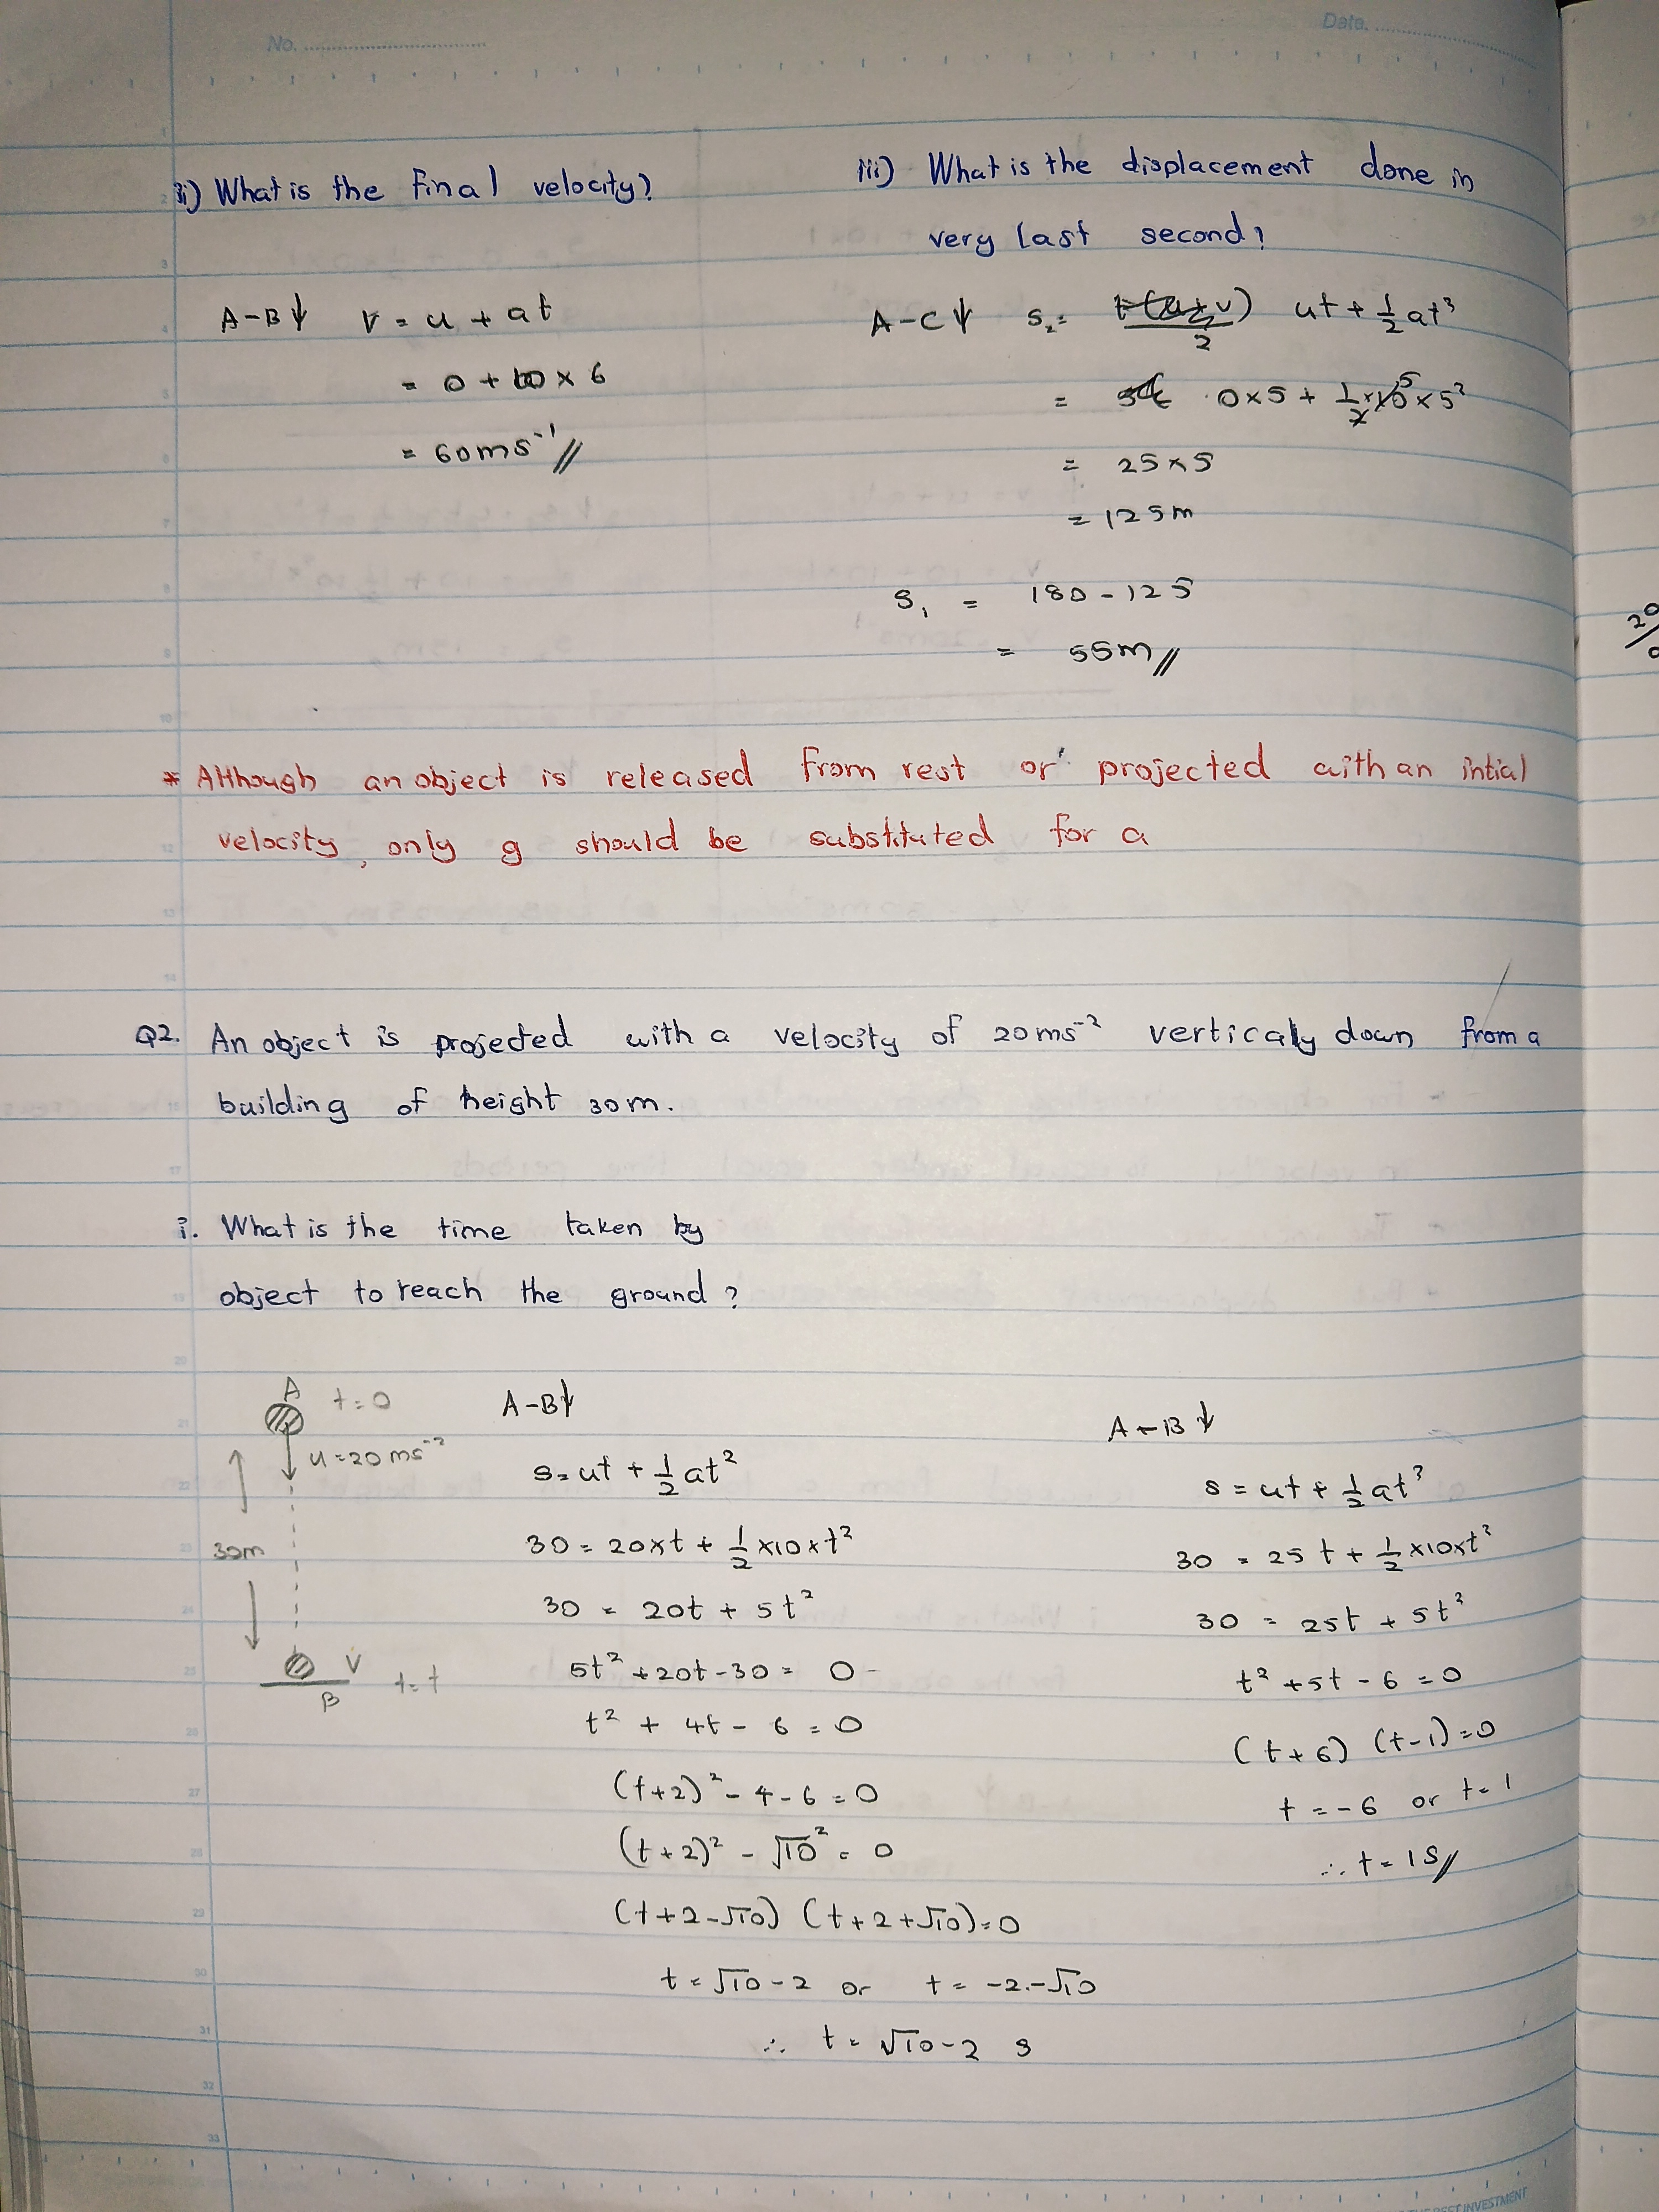 No.
Date.
ii) What is the final velocity?
A-B↓ v = u + at
= 0 + 10 × 6
= 60ms⁻¹//
iii) What is the displacement done in
very last second?
A-C↓ s₂ = t(u+v)/2 ut + 1/2 at²
= 0×5 + 1/2 × 10 × 5²
= 25 × 5
= 125m
S₁ = 180 - 125
= 55m//
* Although an object is released from rest or projected with an intial
velocity, only g should be substituted for a
Q2. An object is projected with a velocity of 20ms⁻² verticaly down from a
building of height 30m.
i. What is the time taken by
object to reach the ground?
A t=0
u=20ms⁻²
30m
V
B t=t
A-B↓
s = ut + 1/2 at²
30 = 20×t + 1/2 ×10×t²
30 = 20t + 5t²
5t² + 20t - 30 = 0
t² + 4t - 6 = 0
(t+2)² - 4 - 6 = 0
(t+2)² - √10² = 0
(t+2-√10) (t+2+√10)=0
t = √10 - 2 or t = -2-√10
∴ t = √10-2 s
A-B↓
s = ut + 1/2 at²
30 = 25t + 1/2 ×10×t²
30 = 25t + 5t²
t² + 5t - 6 = 0
(t+6) (t-1)=0
t = -6 or t=1
∴ t = 1s//